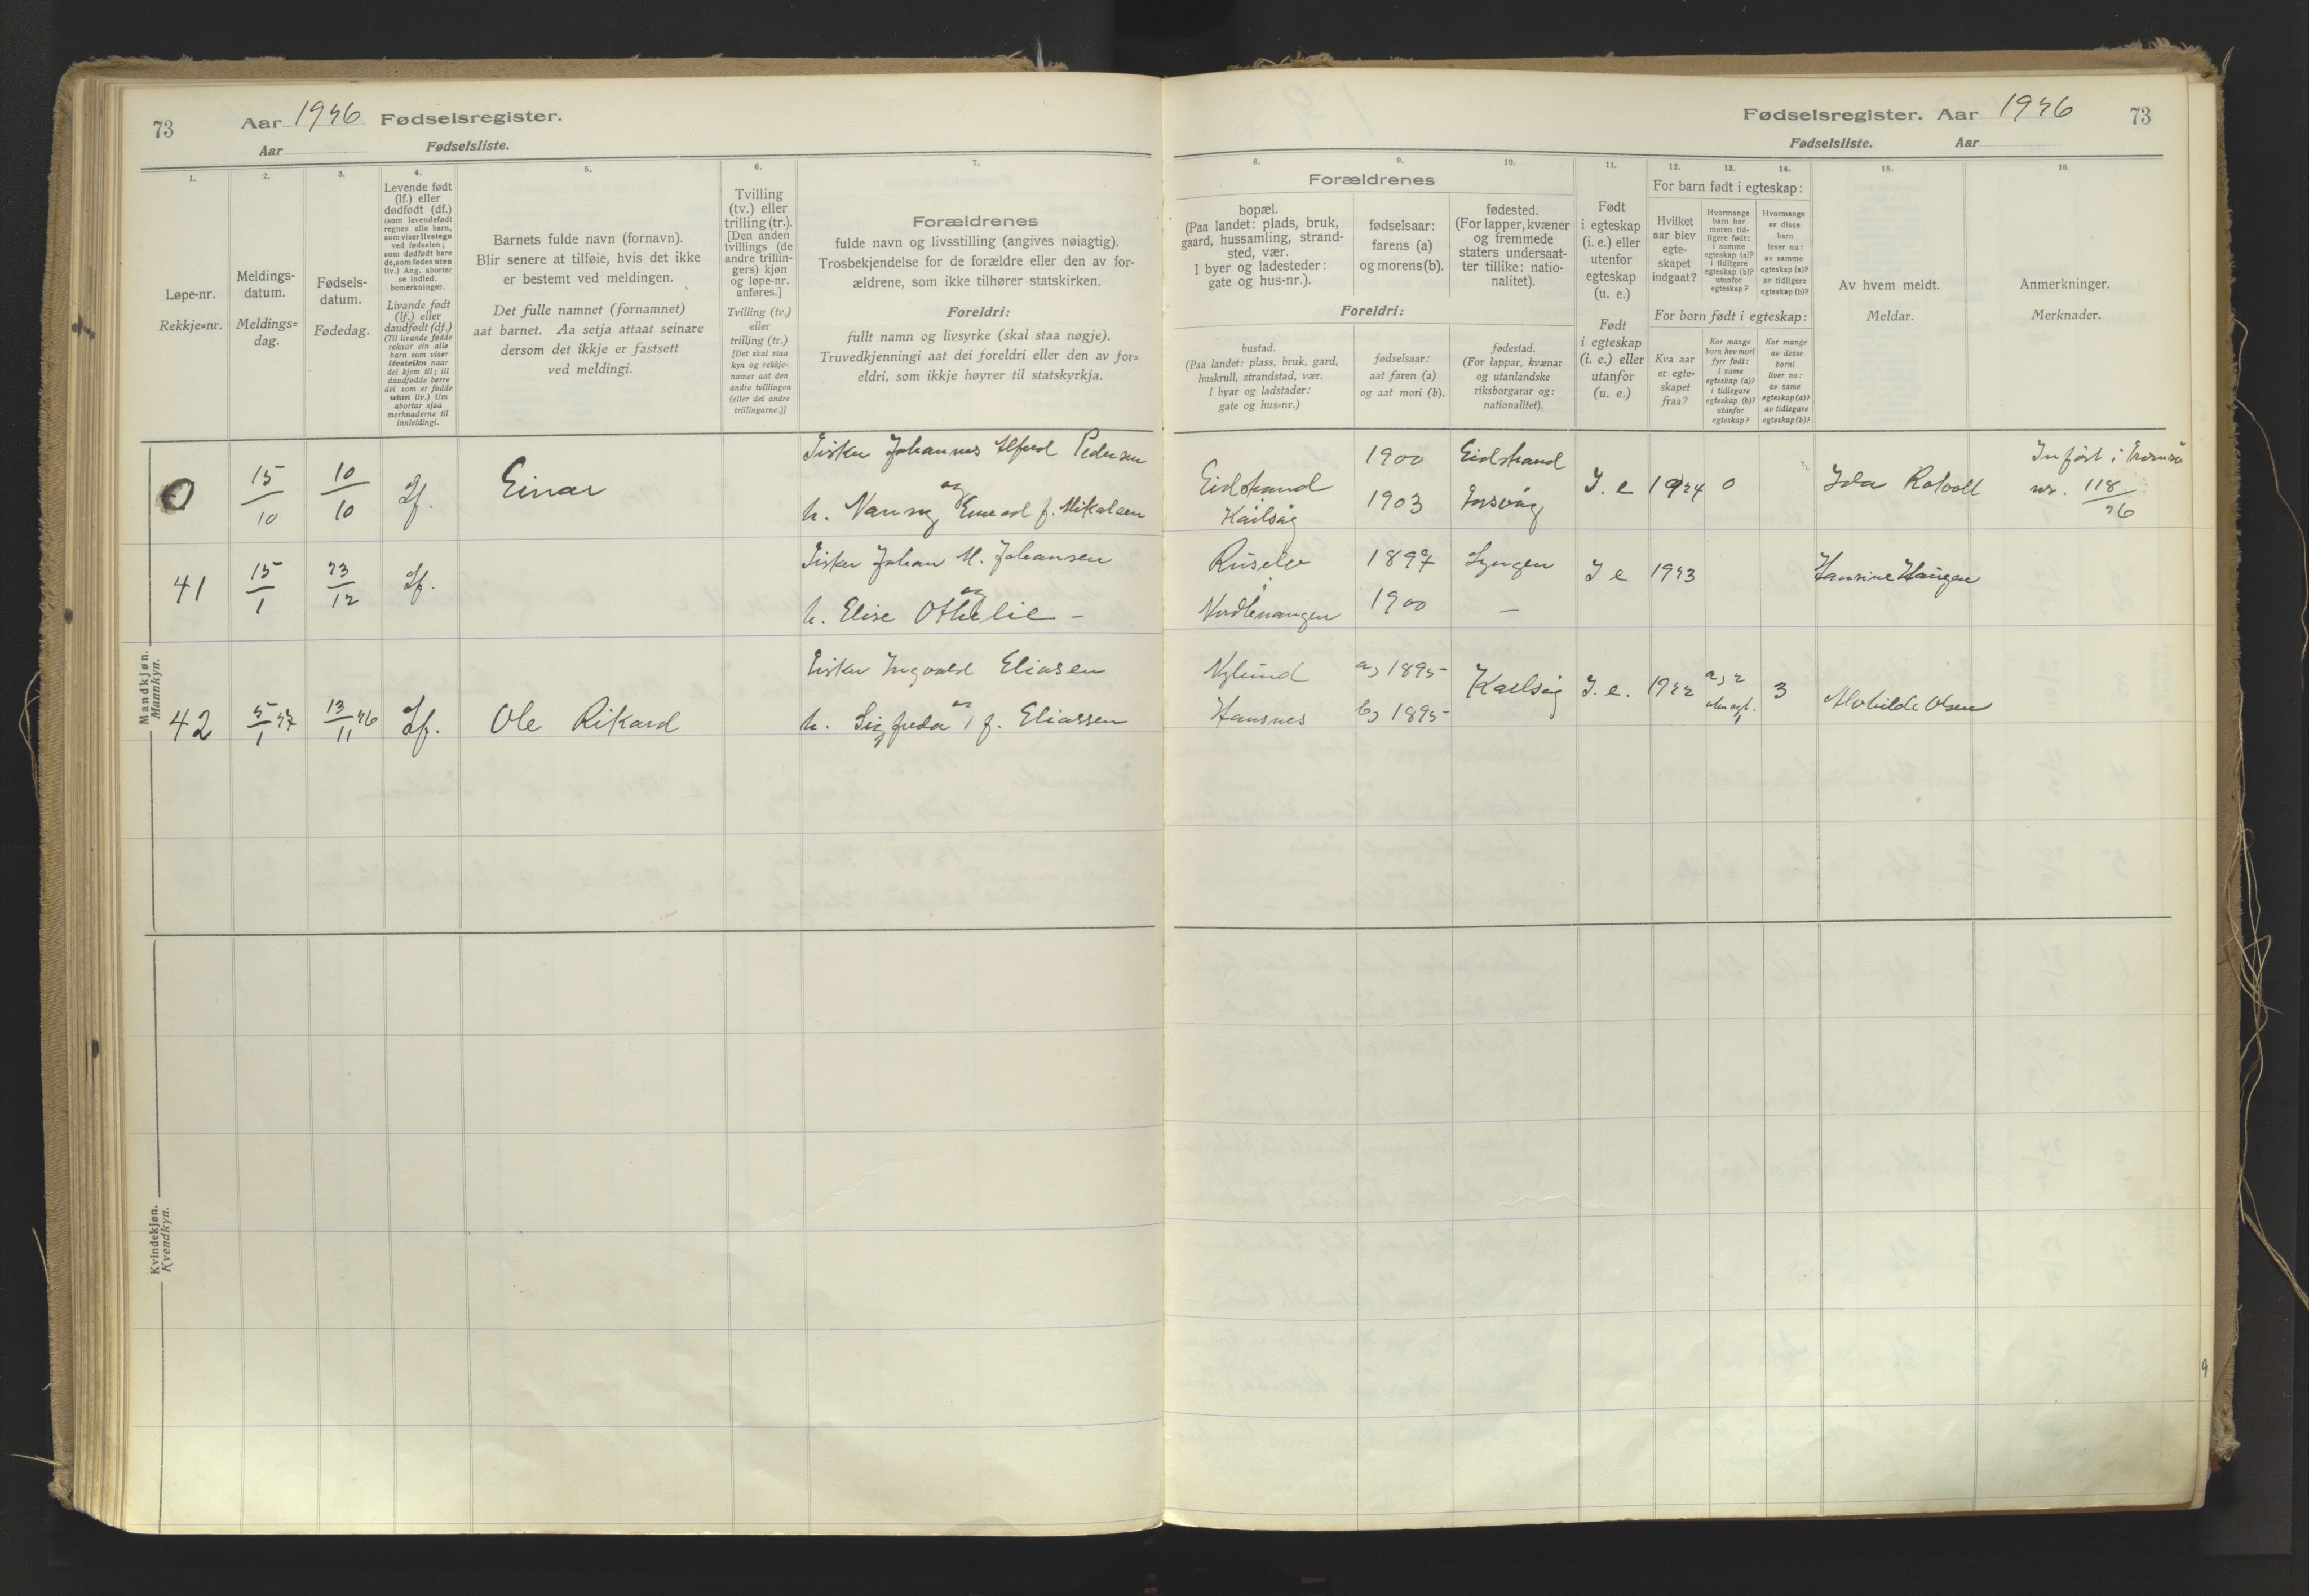 73 Aar 1926 Fødselsregister.
Aar Fødselsliste.
Fødselsregister. Aar 1926 73
Fødselsliste. Aar
1.
Løpe-nr.
Rekkje=nr.
2.
Meldings-
datum.
Meldings=
dag.
3.
Fødsels-
datum.
Fødedag.
4.
Levende født
(lf.) eller
dødfødt (df.)
(som levendefødt
regnes alle barn,
som viser livstegn
ved fødselen;
som dødfødt bare
de, som fødes uten
liv.) Ang. aborter
se indled.
bemerkninger.
Livande født
(lf.) eller
daudfødt (df.)
(Til livande fødde
reknar ein alle
barn som viser
livsteikn naar
dei kjem til; til
daudfødde berre
dei som er fødde
utan liv.) Um
abortar sjaa
merknaderne til
innleidingi.
5.
Barnets fulde navn (fornavn).
Blir senere at tilføie, hvis det ikke
er bestemt ved meldingen.
Det fulle namnet (fornamnet)
aat barnet. Aa setja attaat seinare
dersom det ikkje er fastsett
ved meldingi.
6.
Tvilling
(tv.) eller
trilling (tr.).
[Den anden
tvillings (de
andre trillin-
gers) kjøn
og løpe-nr.
anføres.]
Tvilling (tv.)
eller
trilling (tr.)
[Det skal staa
kyn og rekkje-
numer aat den
andre tvillingen
(eller dei andre
trillingarne.)]
7.
Forældrenes
fulde navn og livsstilling (angives nøiagtig).
Trosbekjendelse for de forældre eller den av for-
ældrene, som ikke tilhører statskirken.
Foreldri:
fullt namn og livsyrke (skal staa nøgje).
Truvedkjenningi aat dei foreldri eller den av for=
eldri, som ikkje høyrer til statskyrkja.
Forældrenes
8.
bopæl.
(Paa landet: plads, bruk,
gaard, hussamling, strand-
sted, vær.
I byer og ladesteder:
gate og hus-nr.).
9.
fødselsaar:
farens (a)
og morens (b).
10.
fødested.
(For lapper, kvæner
og fremmede
staters undersaat-
ter tillike: natio-
nalitet).
Foreldri:
bustad.
(Paa landet: plass, bruk, gard,
huskrull, strandstad, vær.
I byar og ladstader:
gate og hus=nr.)
fødselsaar:
aat faren (a)
og aat mori (b).
fødestad.
(For lappar, kvænar
og utanlandske
riksborgarar og:
nationalitet).
11.
Født
i egteskap
(i. e.) eller
utenfor
egteskap
(u. e.)
Født
i egteskap
(i. e.) eller
utanfor
(u. e.)
12. 13. 14.
For barn født i egteskap:
Hvilket
aar blev
egte-
skapet
indgaat?
Hvormange
barn har
moren tid-
ligere født:
i samme
egteskap (a)?
i tidligere
egteskap (b)?
utenfor
egteskap?
Hvormange
av disse
barn
lever nu:
av samme
egteskap (a)?
av tidligere
egteskap (b)?
For born født i egteskap:
Kva aar
er egte=
skapet
fraa?
Kor mange
born hev mori
fyrr født:
i same
egteskap (a)?
i tidlegare
egteskap (b)?
utanfor
egteskap?
Kor mange
av desse
borni
liver nu:
av same
egteskap (a)?
av tidlegare
egteskap (b)?
15.
Av hvem meldt.
Meldar.
16.
Anmerkninger.
Merknader.
Mandkjøn.
Mannkyn.
0 15/10 10/10 Lf. Einar
Fisker Johannes Alfred Pedersen
og
h. Nanny f. Mikalsen
Eidstrand
Karlsøy
1900
1903
Eidstrand
I. e 1924 0 Ida
Inført i Tromsø
nr. 118/26
41 15/1 23/12 Lf.
Fisker Johan M. Johansen
og
h. Elise Othelie -
Nordlenangen
1897
1900
Lyngen
—
I e 1923 Hansine Haugen
42 5/1 27 13/11 26 Lf. Ole Rikard
Fisker Ingvald Eliasen
og
h. Sigfreda f. Eliassen
Nylund
Hansnes
a) 1895
b) 1895
Karlsøy I. e. 1922 a) 2
1
3 Olsen
Kvindekjøn.
Kvendkyn.
9